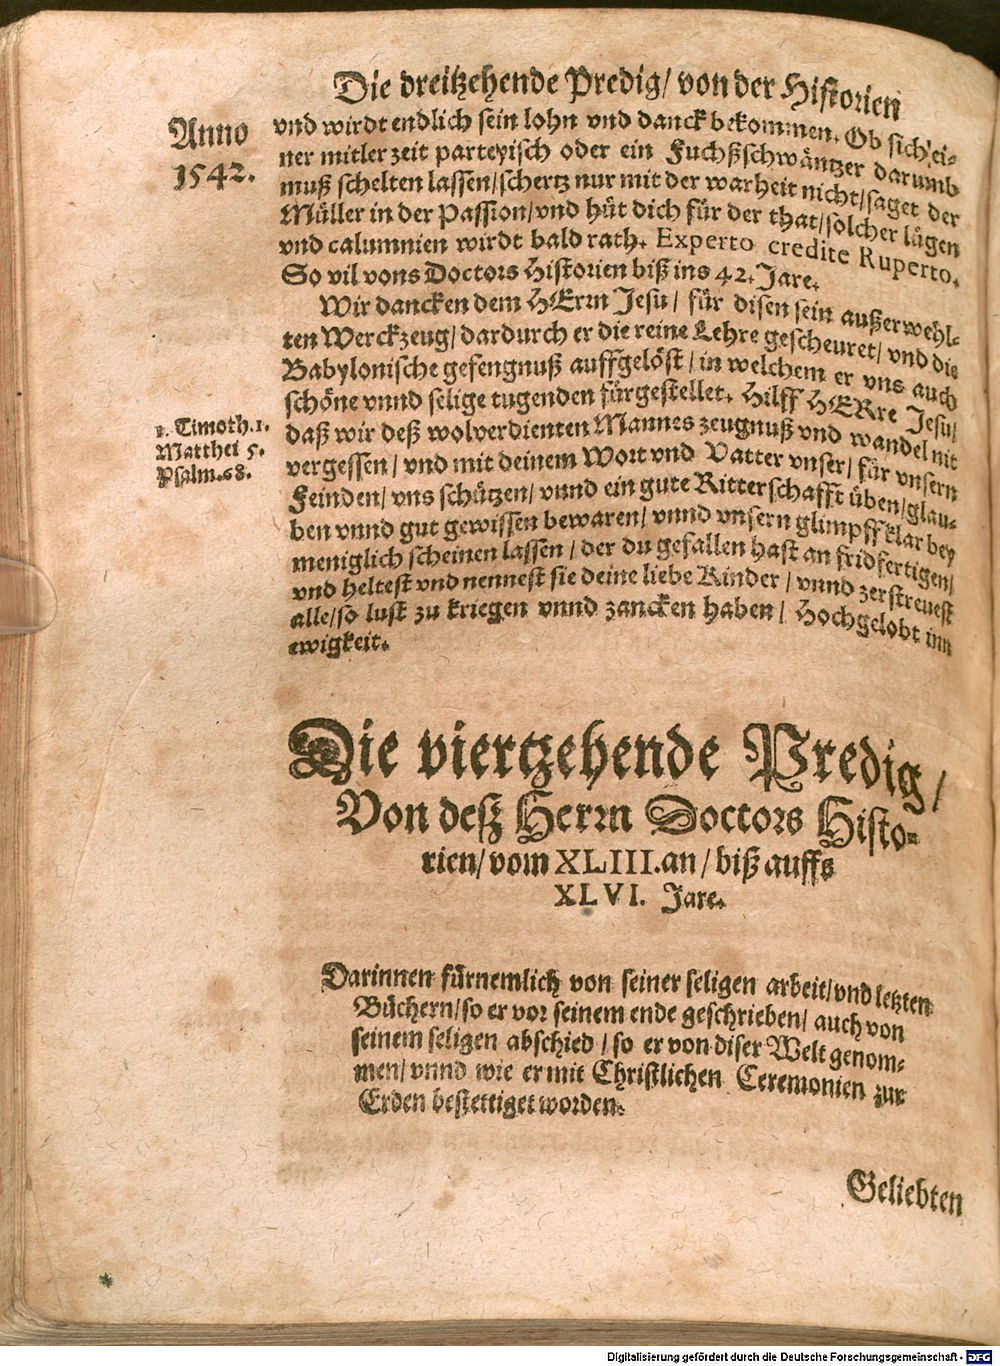 Die dreitzehende Predig/ von der Historien
Anno
1542.
vnd wirdt endlich sein lohn vnd danck bekommen. Ob sich ei-
ner mitler zeit parteyisch oder ein Fuchßschwäntzer darumb
muß schelten lassen/schertz nur mit der warheit nicht/saget der
Müller in der Passion/vnd hüt dich für der that/solcher lügen
vnd calumnien wirdt bald rath. Experto credite Ruperto.
So vil vons Doctors Historien biß ins 42. Jare.
Wir dancken dem HErrn Jesu/ für disen sein außerwehl-
ten Werckzeug/dardurch er die reine Lehre gescheuret/ vnd die
Babylonische gefengnuß auffgelöst/ in welchem er vns auch
schöne vnnd selige tugenden fürgestellet. Hilff HERre Jesu/
daß wir deß wolverdienten Mannes zeugnuß vnd wandel nit
vergessen/ vnd mit deinem Wort vnd Vatter vnser/ für vnsern
Feinden/ vns schützen/ vnnd ein gute Ritterschafft üben/glau-
ben vnnd gut gewissen bewaren/ vnnd vnsern glimpff klar bey
meniglich scheinen lassen/ der du gefallen hast an fridfertigen/
vnd heltest vnd nennest sie deine liebe Kinder/ vnnd zerstreuest
alle/so lust zu kriegen vnnd zancken haben/ Hochgelobt inn
ewigkeit.
1. Timoth. 1.
Matthei 5.
Psalm. 68.
Die viertzehende Predig/
Von deß Herrn Doctors Histo-
rien/ vom XLIII. an/ biß auffs
XLVI. Jare.
Darinnen fürnemlich von seiner seligen arbeit/vnd letzten
Büchern/so er vor seinem ende geschrieben/ auch von
seinem seligen abschied/ so er von diser Welt genom-
men/ vnnd wie er mit Christlichen Ceremonien zur
Erden bestettiget worden.
Geliebten
Digitalisierung gefördert durch die Deutsche Forschungsgemeinschaft - DFG